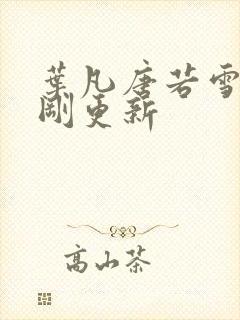 葉凡唐若雪
剛更新
高山茶